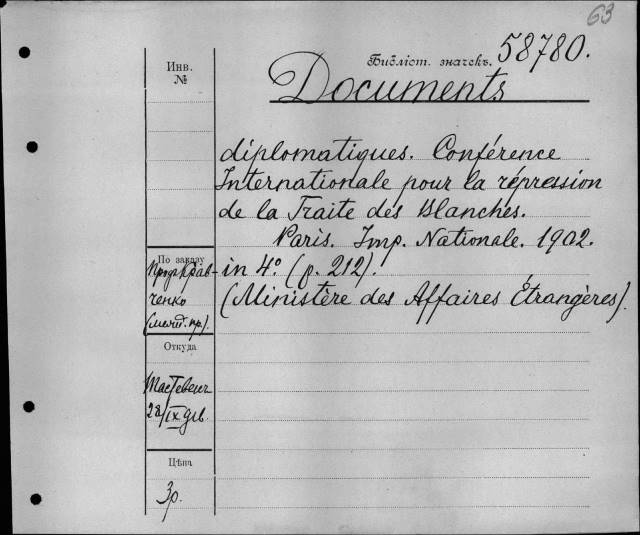 63
Библіот. значекъ. 58780.
Инв.
№
Documents
diplomatiques. Conférence
Internationale pour la répression
de la Traite des Blanches.
Paris. Imp. Nationale. 1902.
in 4º. (p. 212).
(Ministère des Affaires Étrangères).
По заказу
Проф. Крав-
ченко
Откуда
28/IX
Цѣна
3р.